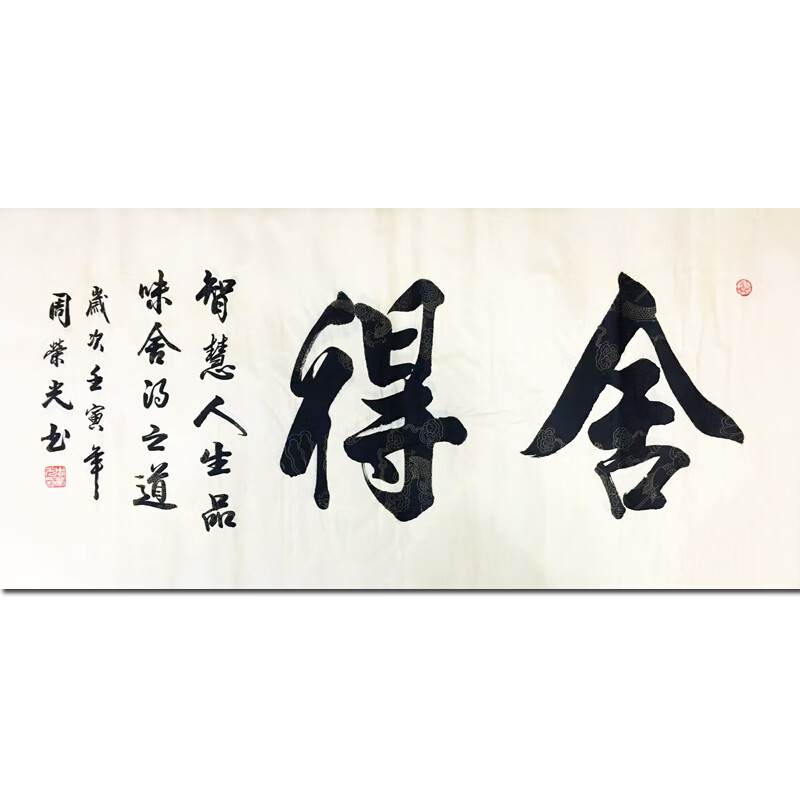 舍得
智慧人生品
味舍得之道
歲次壬寅年
周榮光书